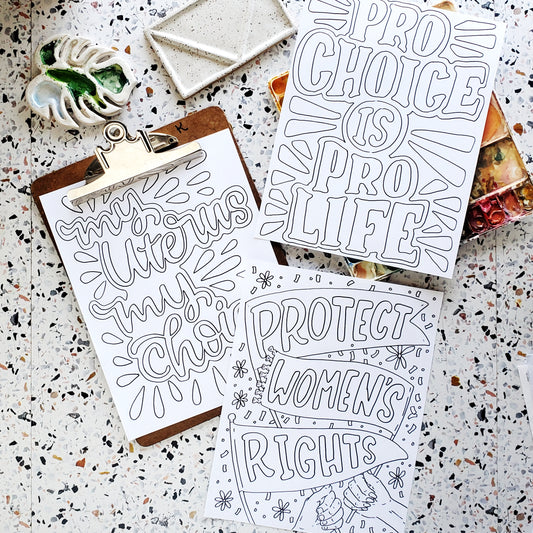 PRO
CHOICE
IS
PRO
LIFE
my
Uterus
my
Choi
PROTECT
WOMEN'S
RIGHTS
K